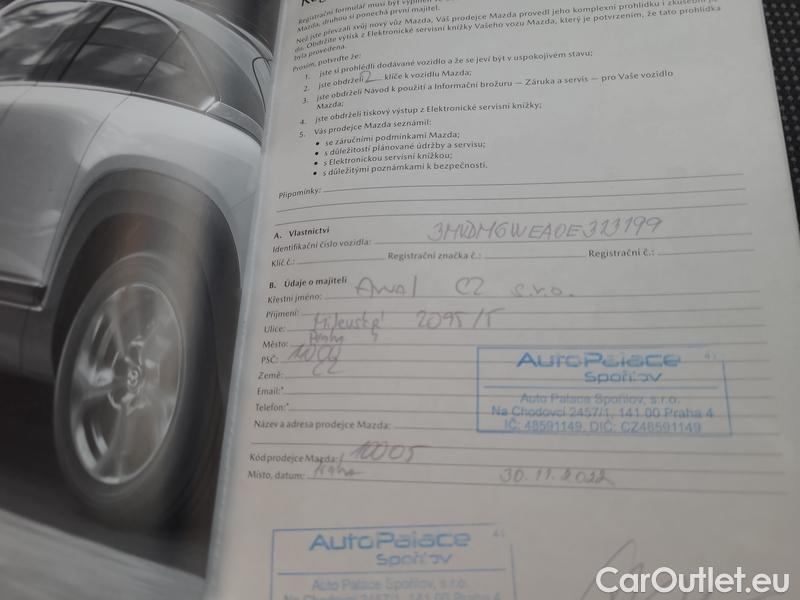 Registrační formulář musí být vyplněn ve
Mazda, druhou si ponechá první majitel.
Než jste převzali svůj nový vůz Mazda, Váš prodejce Mazda provedl jeho komplexní prohlídku i zkušební
du. Obdržíte výtisk z Elektronické servisní knížky Vašeho vozu Mazda, který je potvrzením, že tato prohlídka
byla provedena.
Prosím, potvrďte že:
1. jste si prohlédli dodávané vozidlo a že se jeví být v uspokojivém stavu;
2. jste obdrželi 2 klíče k vozidlu Mazda;
3. jste obdrželi Návod k použití a Informační brožuru — Záruka a servis — pro Vaše vozidlo
Mazda;
4. jste obdrželi tiskový výstup z Elektronické servisní knížky;
5. Vás prodejce Mazda seznámil:
• se záručními podmínkami Mazda;
• s důležitostí plánované údržby a servisu;
• s Elektronickou servisní knížkou;
• s důležitými poznámkami k bezpečnosti.
Připomínky:
A. Vlastnictví
Identifikační číslo vozidla: 3MVDM6WEA0E323199
Klíč č.: Registrační značka č.: Registrační č.:
B. Údaje o majiteli
Křestní jméno: Arval CZ s.r.o.
Příjmení:
Ulice: Milevská 2095/5
Město: Praha
PSČ:
Země: CZ
Email:*
Telefon:*
Název a adresa prodejce Mazda:
AutoPalace
Spořilov
Auto Palace Spořilov, s.r.o.
Na Chodovci 2457/1, 141 00 Praha 4
IČ: 48591149, DIČ: CZ48591149
41
Kód prodejce Mazda: 10005
Místo, datum: Praha 30.11.2022
AutoPalace
Spořilov
Auto Palace Spořilov, s.r.o.
Na Chodovci 2457/1, 141 00 Praha 4
CarOutlet.eu